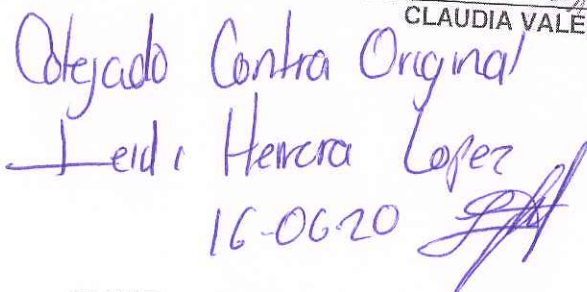 CLAUDIA VALE
Cotejado Contra Original
Leidi Herrera Lopez
16-06-20